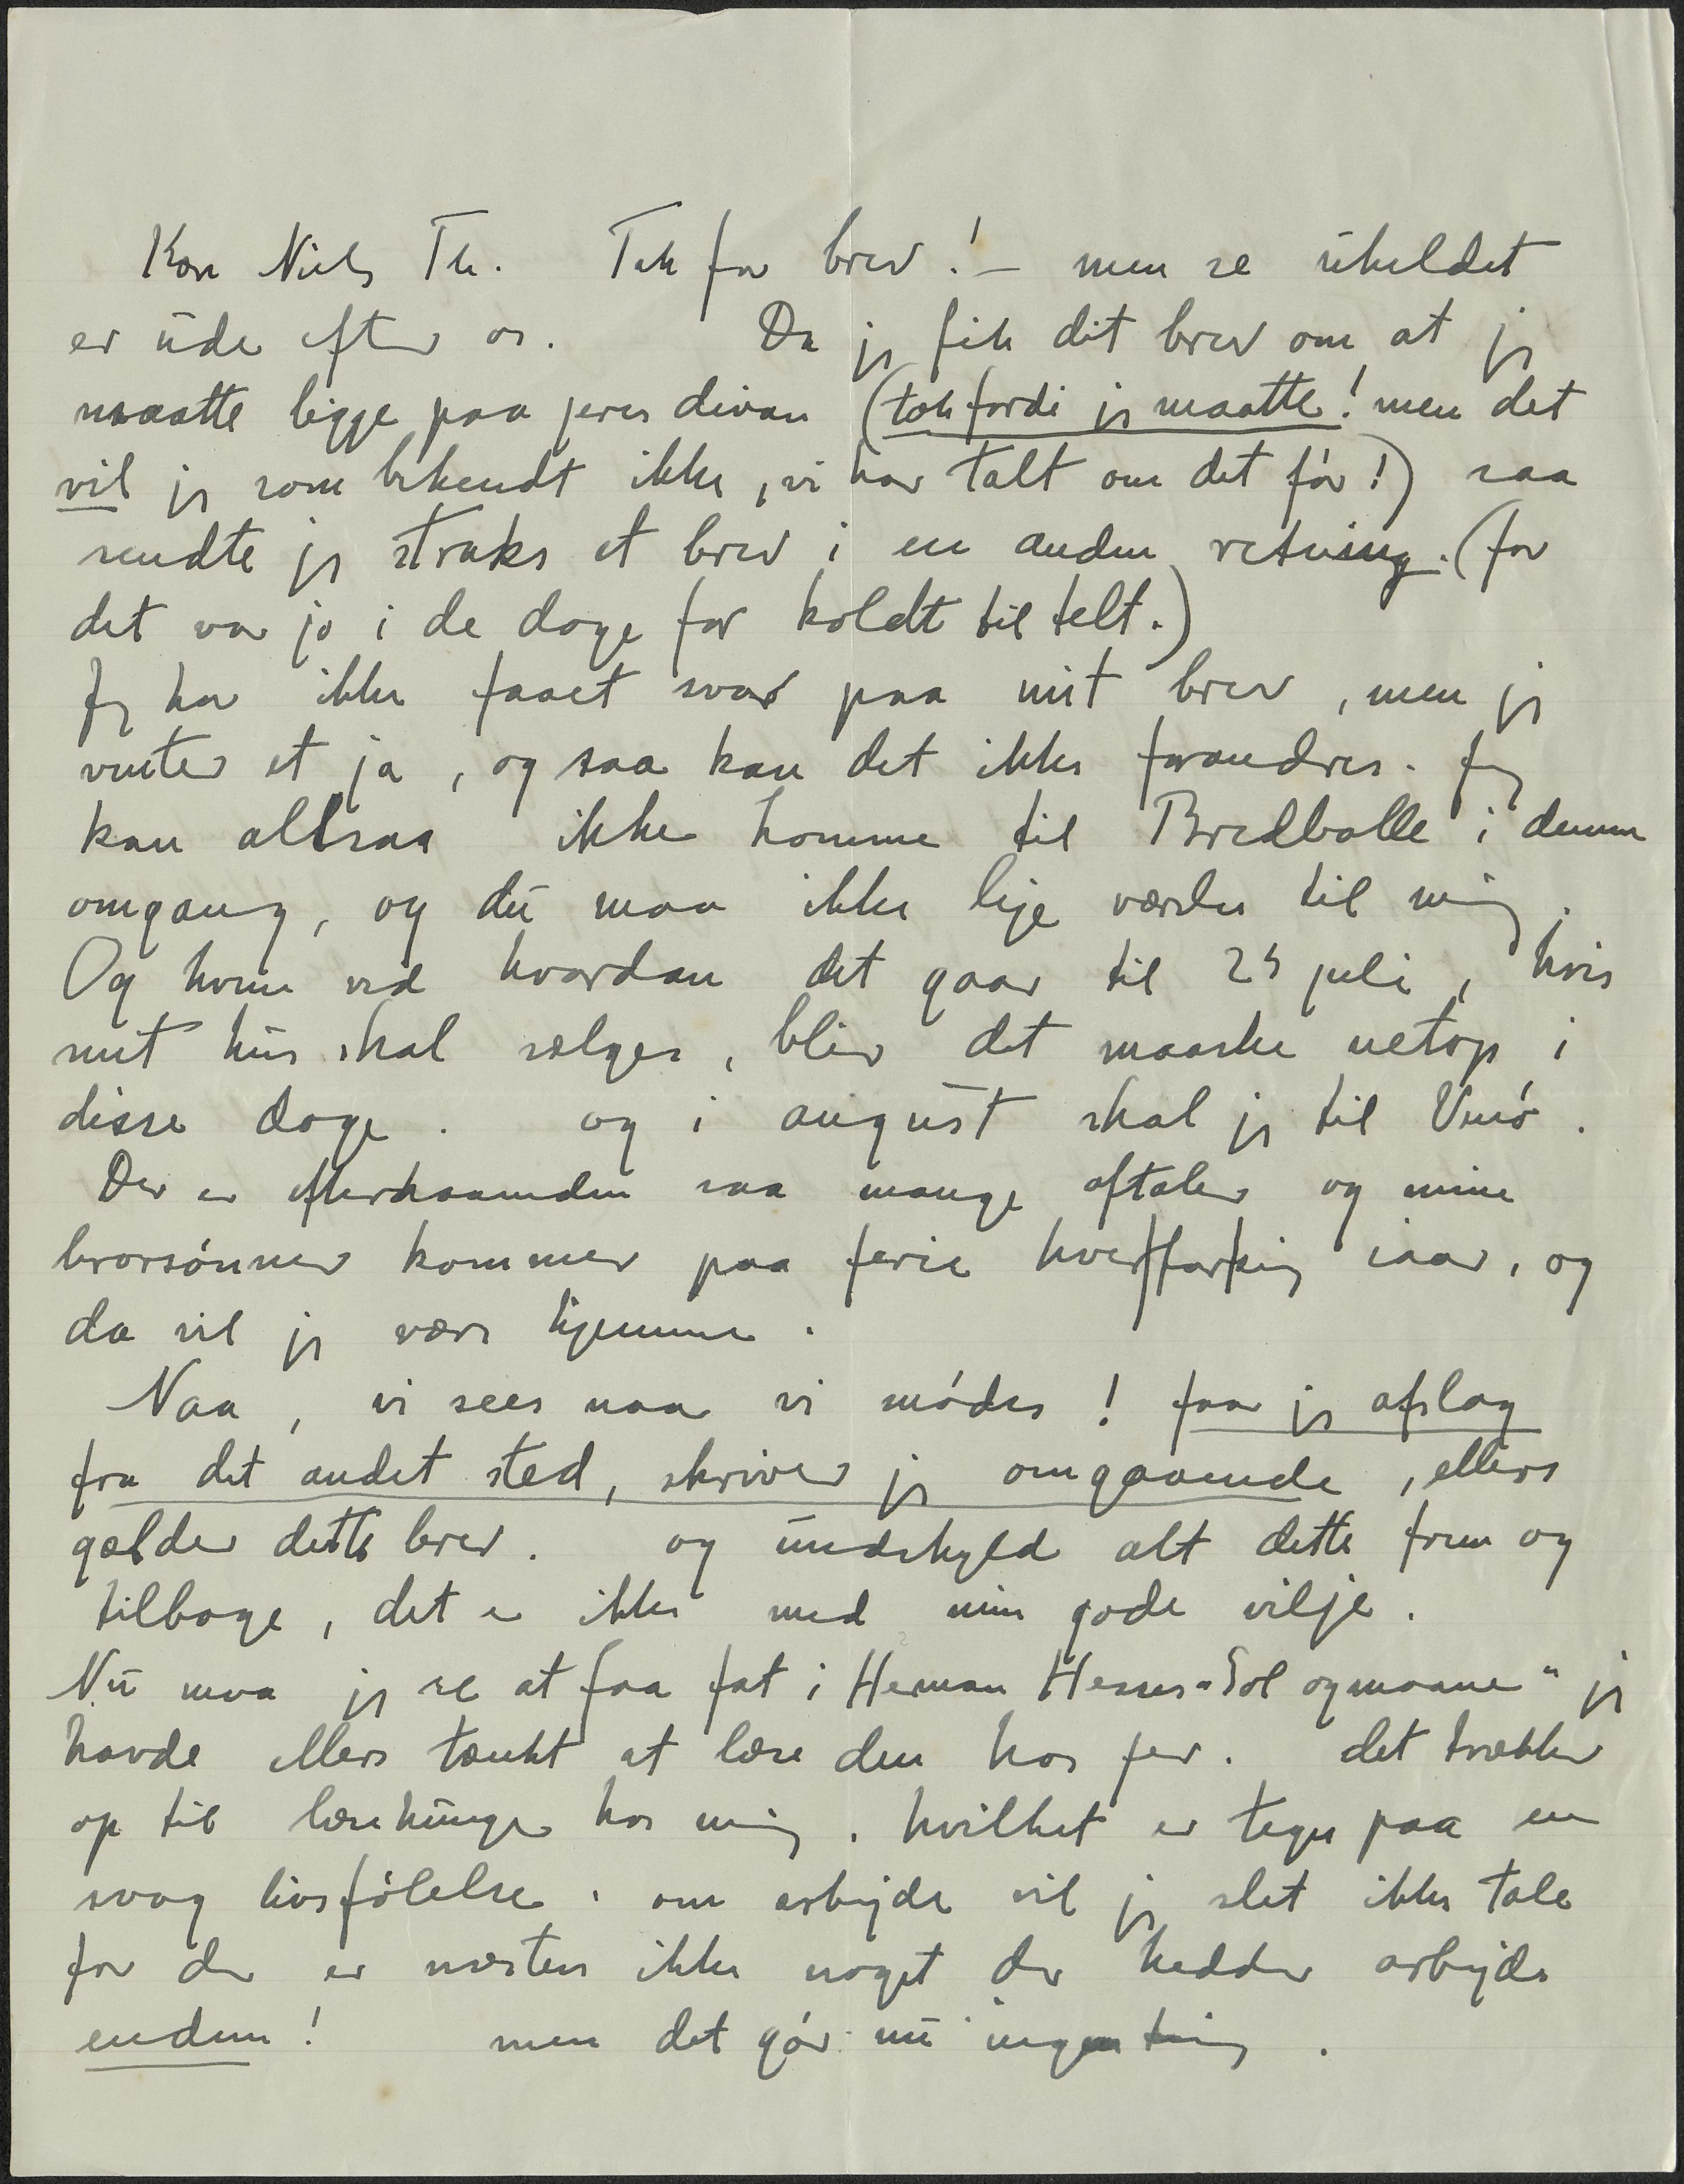 Kære Niels Th. Tak for brev! – men se uheldet
er ude efter os. Da jeg fik dit brev om at jeg
maatte ligge paa jeres divan (tak fordi jeg maatte! men det
vil jeg som bekendt ikke, vi har talt om det før!) saa
sendte jeg straks et brev i en anden retning. (for
det var jo i de dage for koldt til telt.)
Jeg har ikke faaet svar paa mit brev, men jeg
venter et ja, og saa kan det ikke forandres. Jeg
kan altsaa ikke komme til Bredballe i denne
omgang, og du maa ikke lige værdes til mig.
Og hvem ved hvordan det gaar til 25 juli, hvis
mit hus skal sælges, blir det maaske netop i
disse dage. og i august skal jeg til Venø.
Der er efterhaanden saa mange aftaler og mine
brorsønner kommer paa ferie hver for sig iaar, og
da vil jeg være hjemme.
Naa, vi sees naar vi mødes! faar jeg afslag
fra det andet sted, skriver jeg omgaaende, ellers
gælder dette brev. og undskyld alt dette frem og
tilbage, det er ikke med min gode vilje.
Nu maa jeg se at faa fat i Herman Hesses "Sol og maane" jeg
havde ellers tænkt at læse den hos jer. det trækker
op til læsehunger hos mig. hvilket er tegn paa en
svag livsfølelse. om arbejde vil jeg slet ikke tale
for der er næsten ikke noget der hedder arbejde
endnu! men det gør nu ingenting.